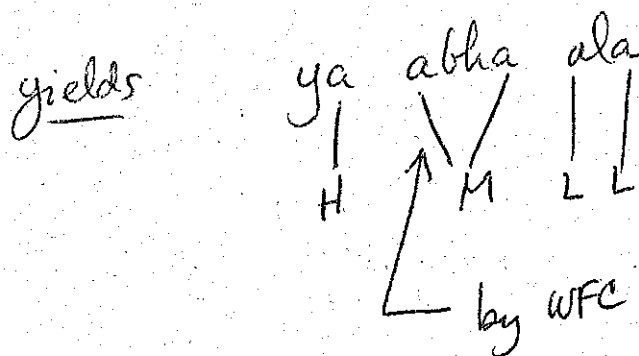 yields ya abha ala
H M L L
by WFC